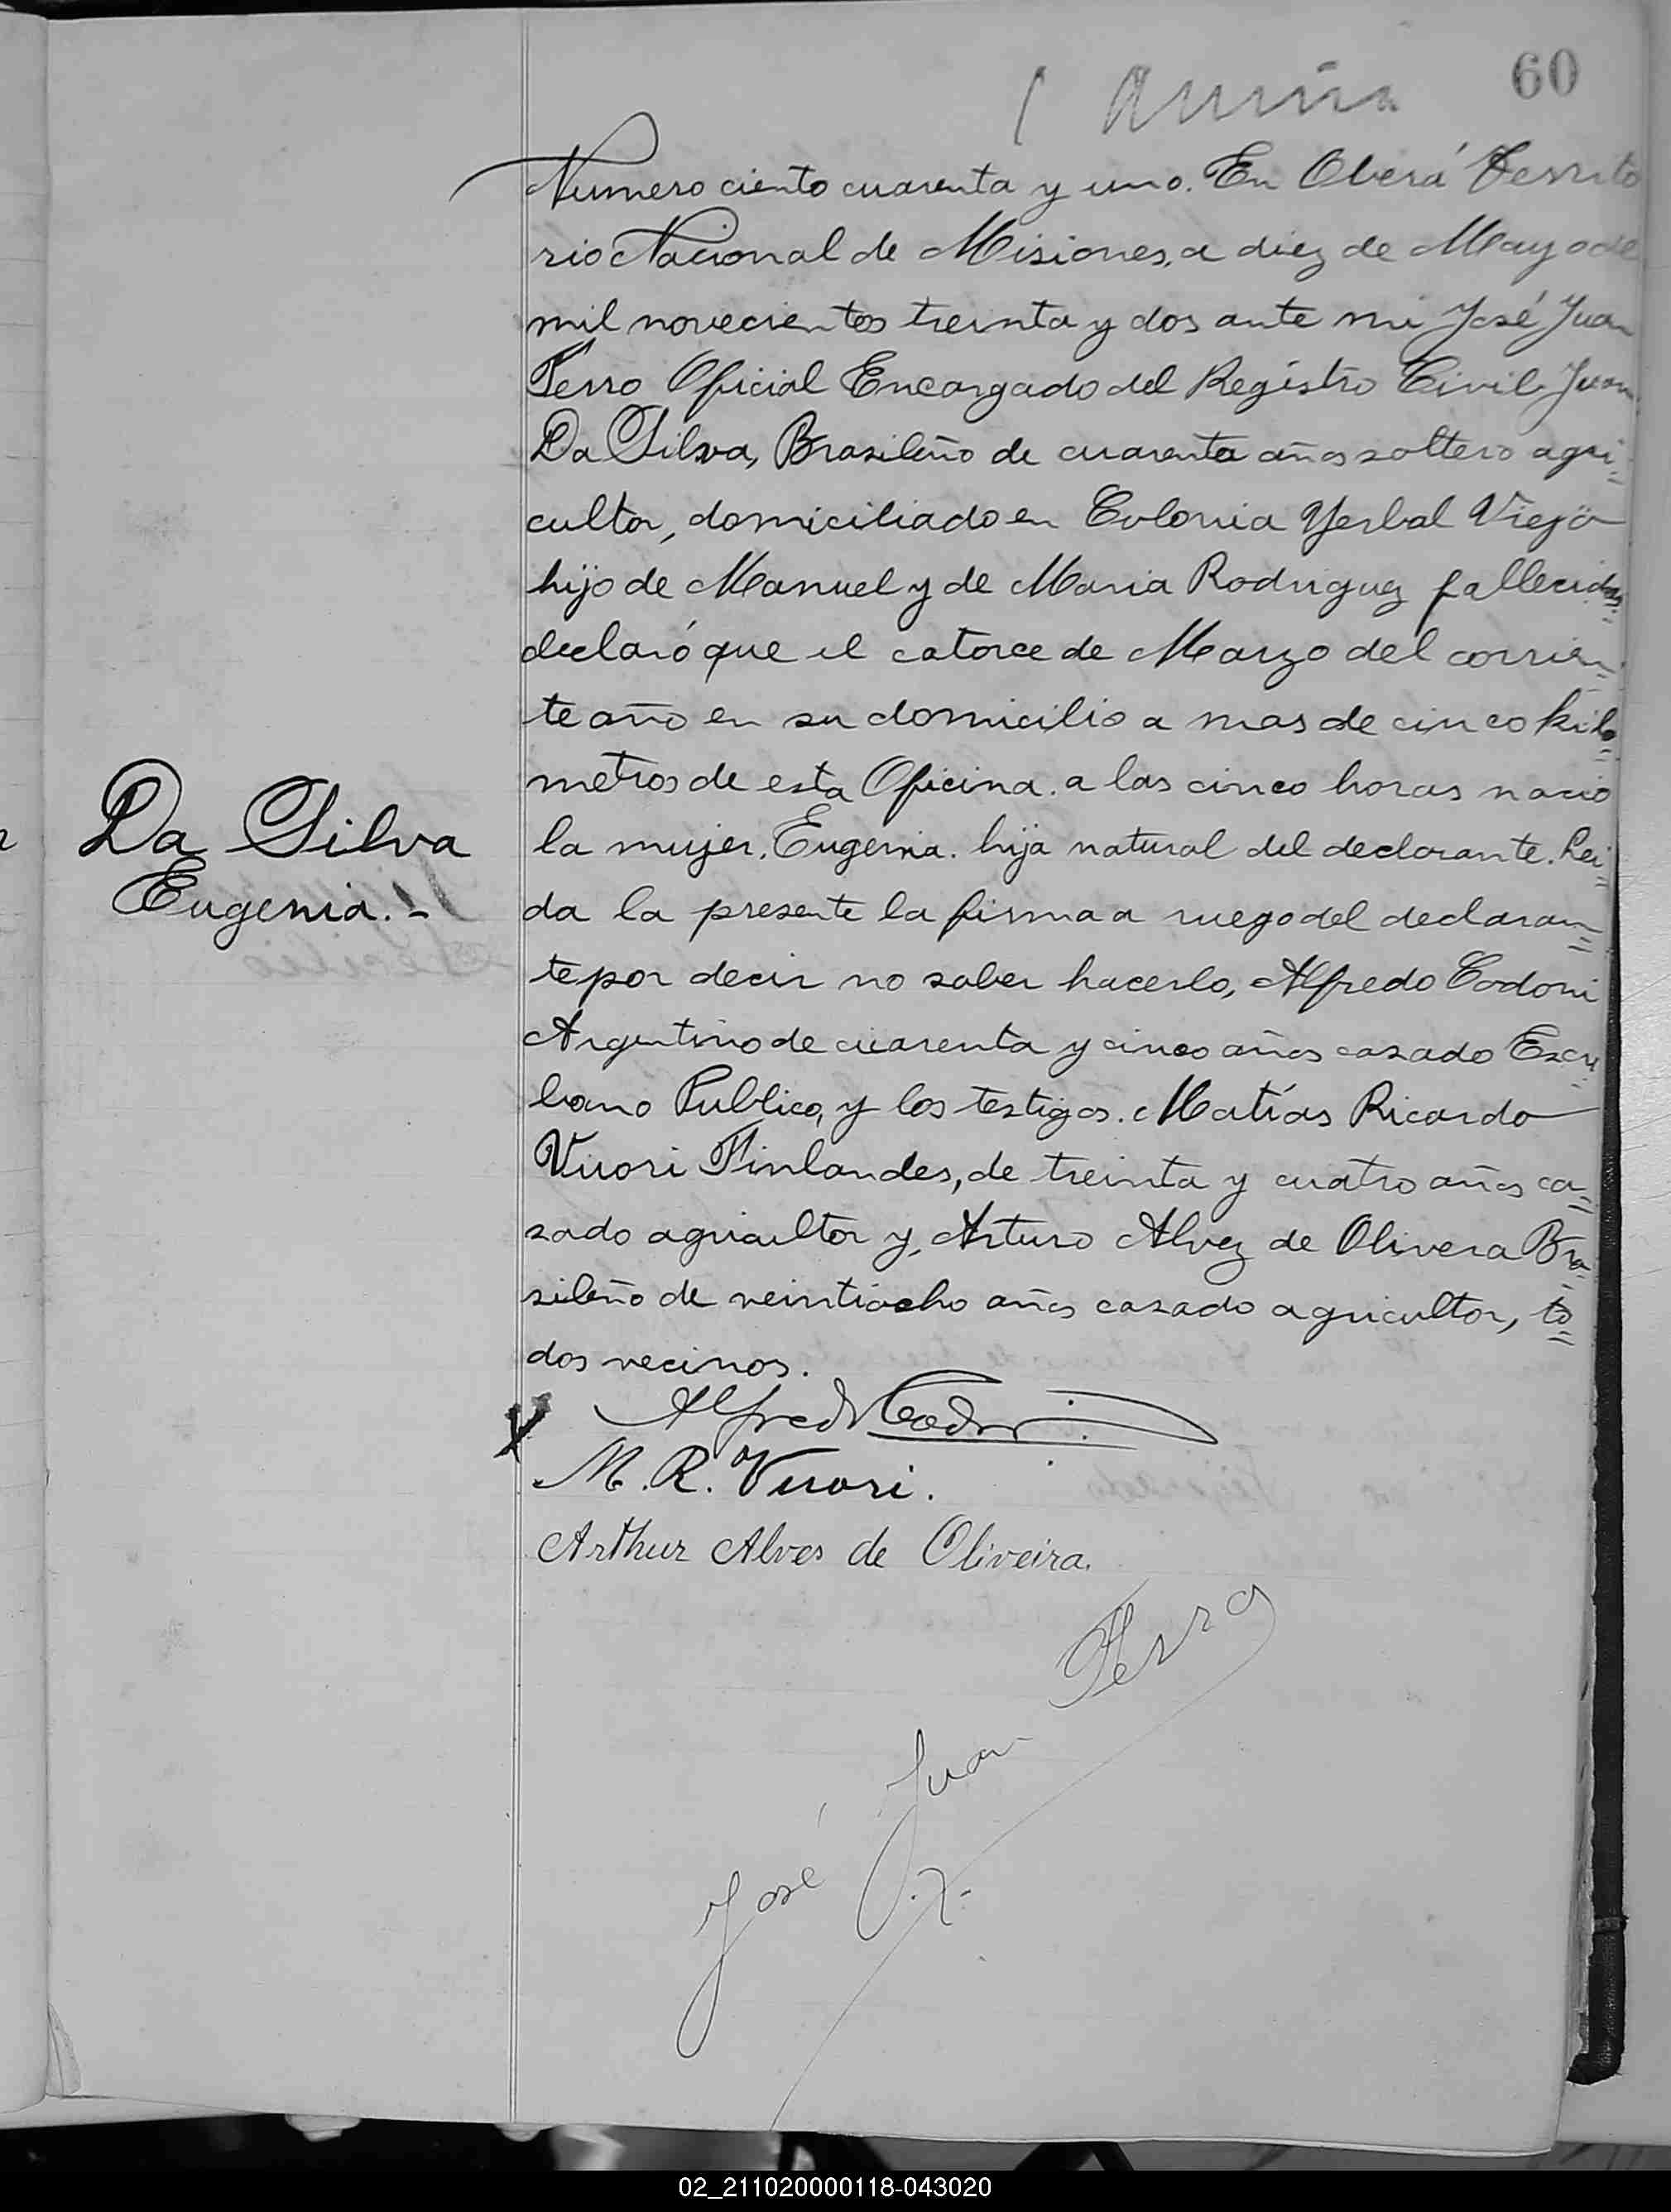 60
Numero ciento cuarenta y uno. En Oberá Territo
rio Nacional de Misiones, a diez de Mayo de
mil novecientos treinta y dos ante mi José Juan
Ferro Oficial Encargado del Registro Civil, Juan
Da Silva, Brasileño de cuarenta años soltero agri=
cultor, domiciliado en Colonia Yerbal Viejo
hijo de Manuel y de Maria Rodriguez fallecidos
declaró que el catorce de Marzo del corrien=
te año en su domicilio a mas de cinco kilo=
metros de esta Oficina. a las cinco horas nació
la mujer. Eugenia. hija natural del declarante. Lei=
da la presente la firma a ruego del declaran=
te por decir no saber hacerlo, Alfredo Codoni
Argentino de cuarenta y cinco años casado Escri=
bano Publico, y los testigos. Matías Ricardo
Vuori Finlandes, de treinta y cuatro años ca=
sado agricultor y, Arturo Alvez de Olivera Bra=
sileño de veintiocho años casado agricultor, to=
dos vecinos.
Da Silva
Eugenia.-
Alfredo Codoni
M. R. Vuori.
Arthur Alves de Oliveira.
José Juan Ferro
02_211020000118-043020